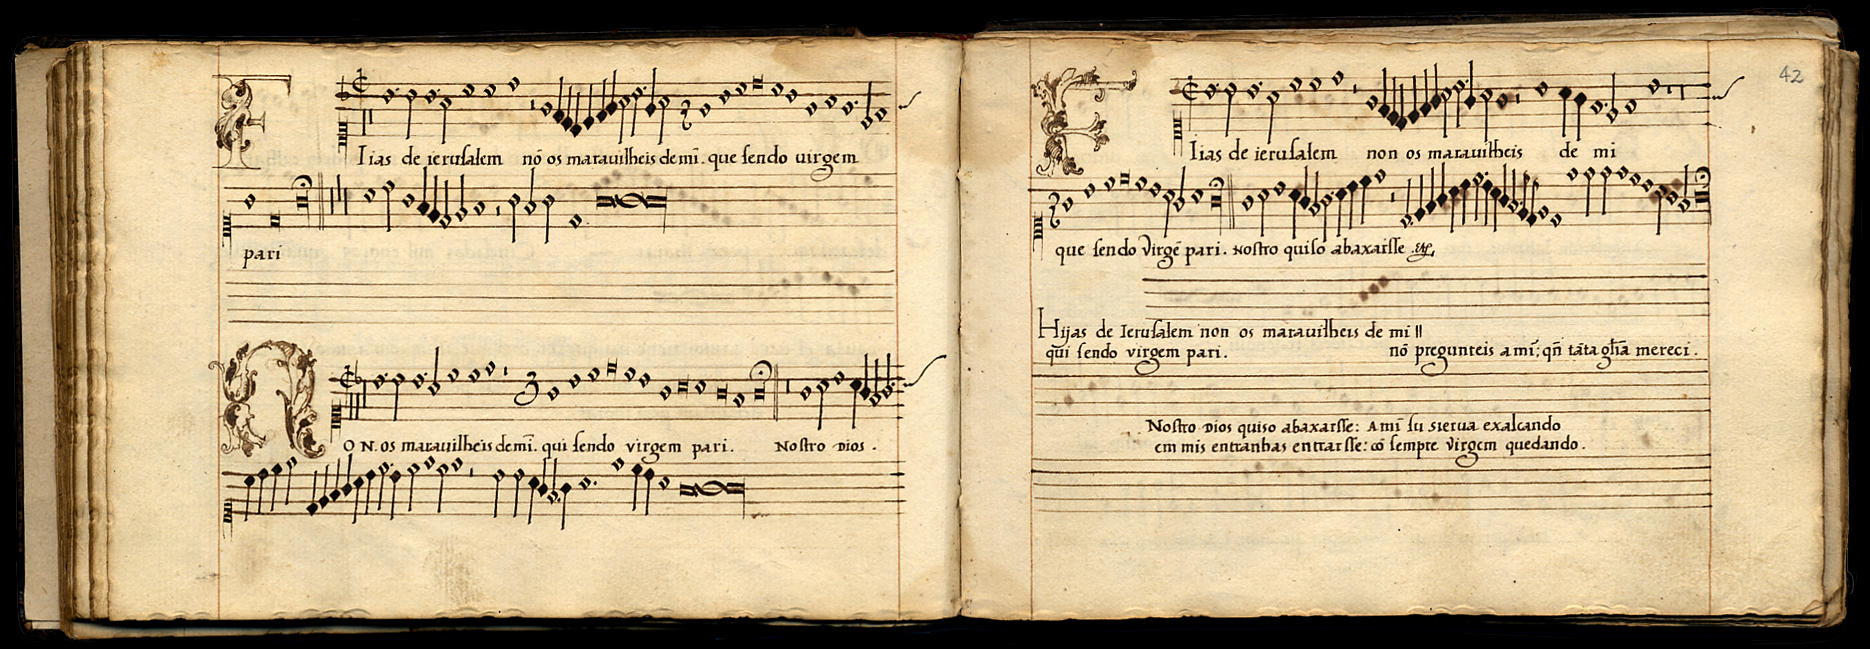 FIias de ierusalem nõ os marauilheis de mĩ. que sendo virgem
pari
NO N. os marauilheis de mĩ. qui sendo virgem pari. Nostro Dios.
42
FIias de ierusalem non os marauilheis de mi
que sendo Virgẽ pari. Nostro quiso abaxarsse
Hijas de Ierusalem non os marauilheis de mi
qui sendo virgem pari. nõ pregunteis a mĩ; qñ tãta gl̃ia mereci.
Nostro Dios quiso abaxarsse: A mĩ su sierua exalcando
em mis entranhas entrarsse: cõ sempre Virgem quedando.